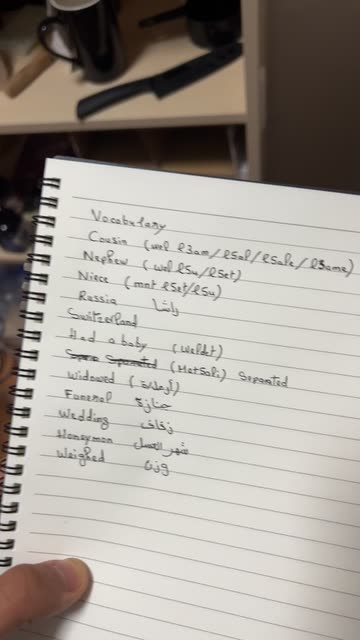 Vocabulary
Cousin (wel l3am / lSal / lSale / l3ame)
Nephew (wel lSu / lSet)
Niece (mnt lSet / lSu)
Russia راشا
Switzerland
Had a baby (Weldet)
(MatSali) Separated
Widowed (أرملة)
Funeral جنازة
Wedding زفاف
Honeymon شهر العسل
Weighed وزن